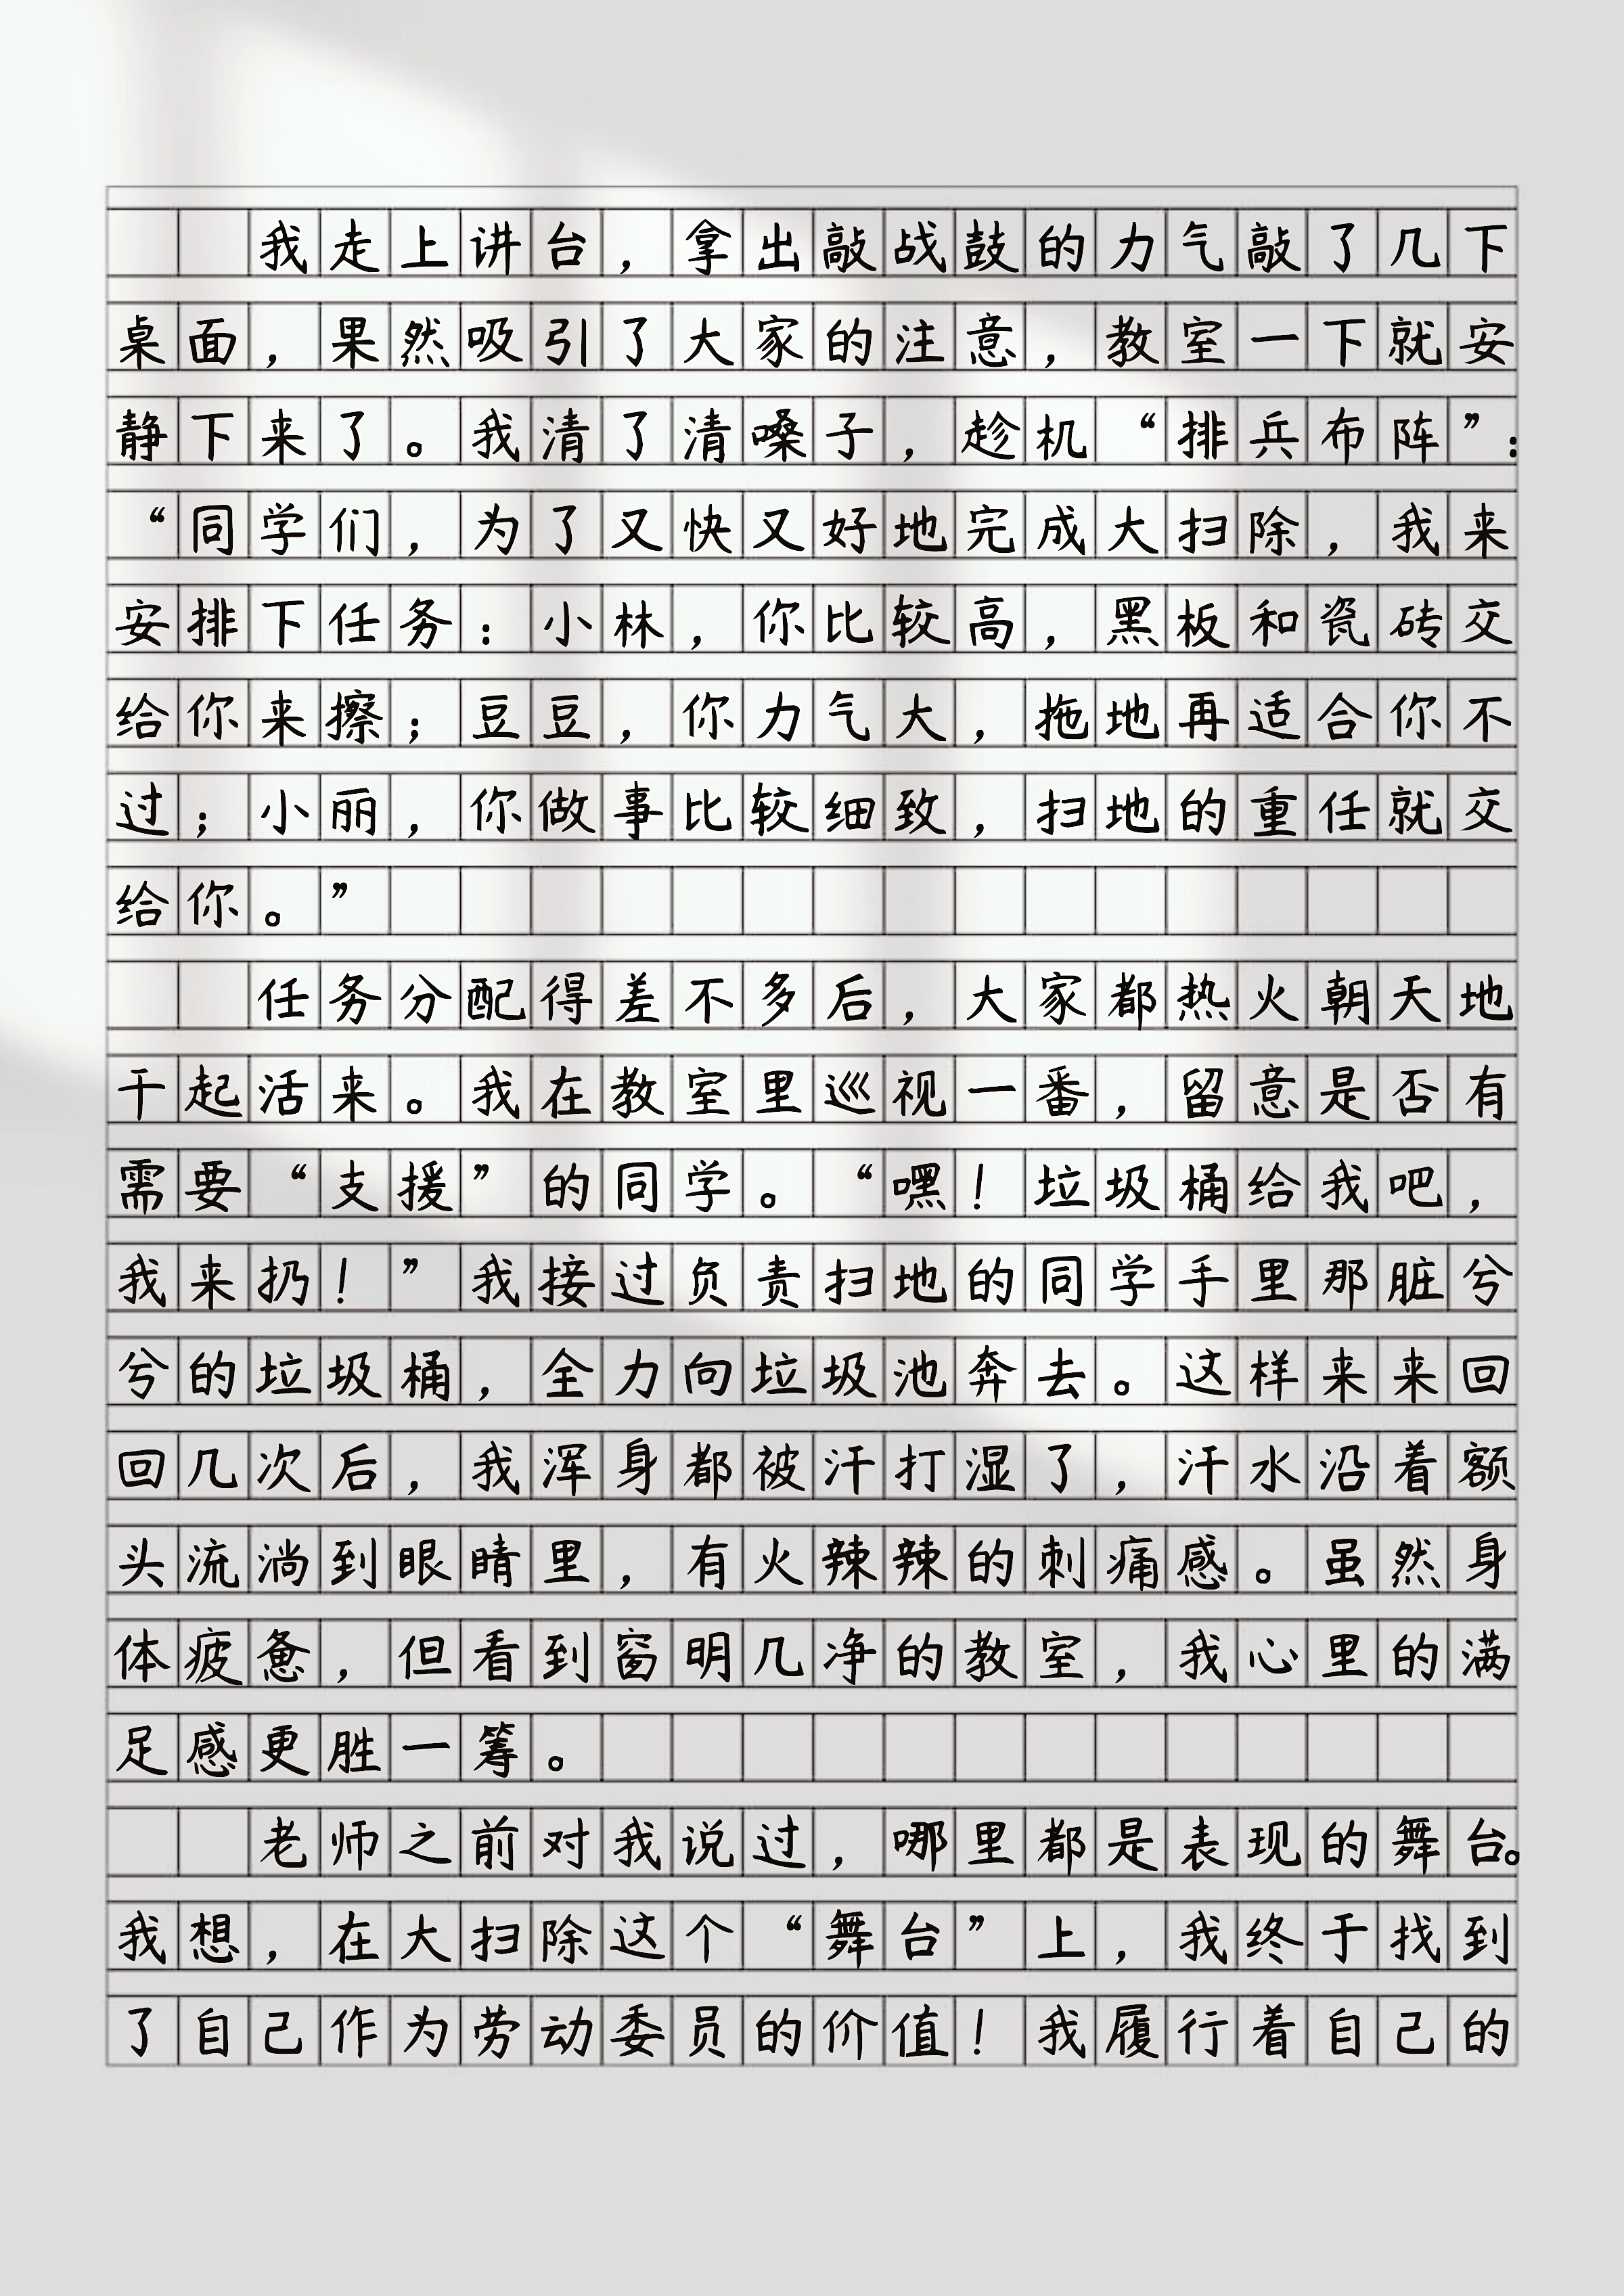 我走上讲台，拿出敲战鼓的力气敲了几下
桌面，果然吸引了大家的注意，教室一下就安
静下来了。我清了清嗓子，趁机“排兵布阵”：
“同学们，为了又快又好地完成大扫除，我来
安排下任务：小林，你比较高，黑板和瓷砖交
给你来擦；豆豆，你力气大，拖地再适合你不
过；小丽，你做事比较细致，扫地的重任就交
给你。”
任务分配得差不多后，大家都热火朝天地
干起活来。我在教室里巡视一番，留意是否有
需要“支援”的同学。“嘿！垃圾桶给我吧，
我来扔！”我接过负责扫地的同学手里那脏兮
兮的垃圾桶，全力向垃圾池奔去。这样来来回
回几次后，我浑身都被汗打湿了，汗水沿着额
头流淌到眼睛里，有火辣辣的刺痛感。虽然身
体疲惫，但看到窗明几净的教室，我心里的满
足感更胜一筹。
老师之前对我说过，哪里都是表现的舞台。
我想，在大扫除这个“舞台”上，我终于找到
了自己作为劳动委员的价值！我履行着自己的